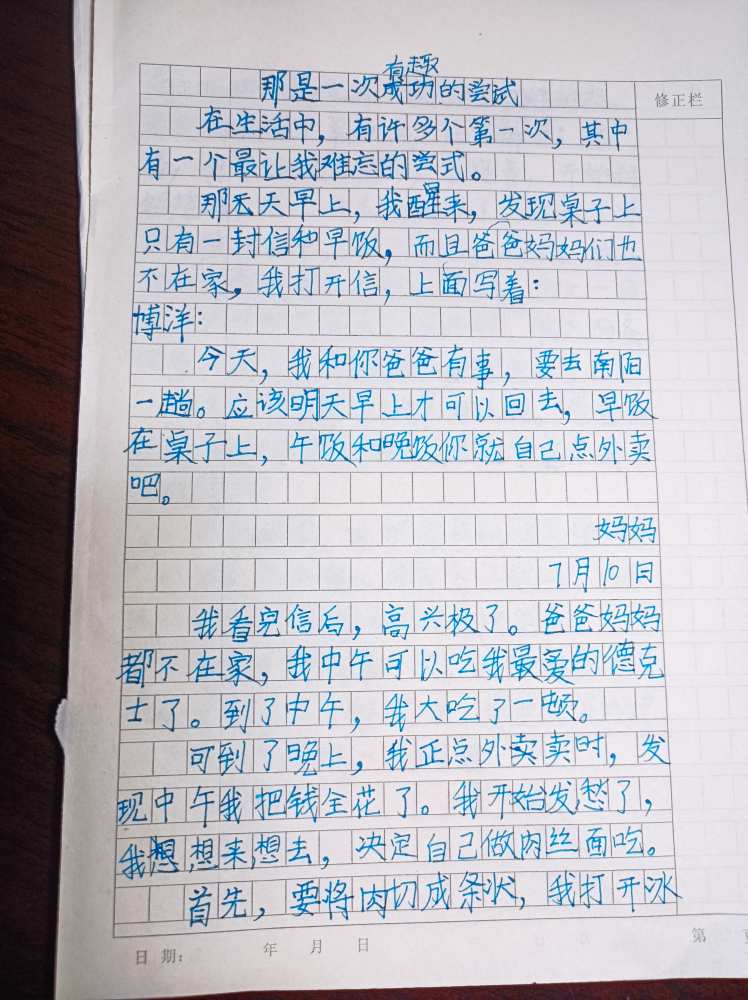 有趣
那是一次成功的尝试
修正栏
在生活中，有许多个第一次，其中
有一个最让我难忘的尝式。
那天早上，我醒来，发现桌子上
只有一封信和早饭，而且爸爸妈妈们也
不在家，我打开信，上面写着：
博洋：
今天，我和你爸爸有事，要去南阳
一趟。应该明天早上才可以回去，早饭
在桌子上，午饭和晚饭你就自己点外卖
吧。
妈妈
7月10日
我看完信后，高兴极了。爸爸妈妈
都不在家，我中午可以吃我最爱的德克
士了。到了中午，我大吃了一顿。
可到了晚上，我正点外卖卖时，发
现中午我把钱全花了。我开始发愁了，
我想想来想去，决定自己做肉丝面吃。
首先，要将肉切成条状，我打开冰
日期： 年 月 日
第